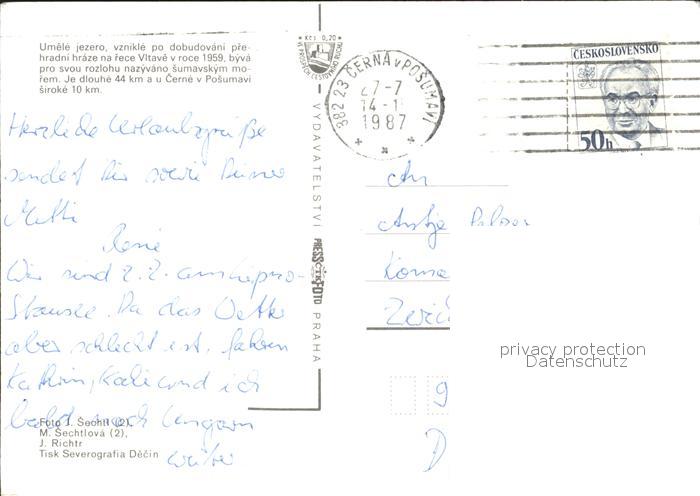 Umělé jezero, vzniklé po dobudování pře-
hradní hráze na řece Vltavě v roce 1959, bývá
pro svou rozlohu nazýváno šumavským mo-
řem. Je dlouhé 44 km a u Černé v Pošumaví
široké 10 km.
Herzliche Urlaubsgrüße
sendet Dir sowie Deiner
Mutti
René
Wir sind z. Z. am Lipno-
Stausee. Da das Wetter
aber schlecht ist, fahren
Kathrin, und ich
bald nach Ungarn
weiter
Foto J. Šechtl (2),
M. Šechtlová (2),
J. Richtr
Tisk Severografia Děčín
Kčs 0,20
VE PROSPĚCH CESTOVNÍHO RUCHU
VYDAVATELSTVÍ PRESSFOTO PRAHA
ČTK
382 23 ČERNÁ v POŠUMAVÍ
27-7
14-1
1987
ČESKOSLOVENSKO
50h
An
Antje
9
D
privacy protection
Datenschutz